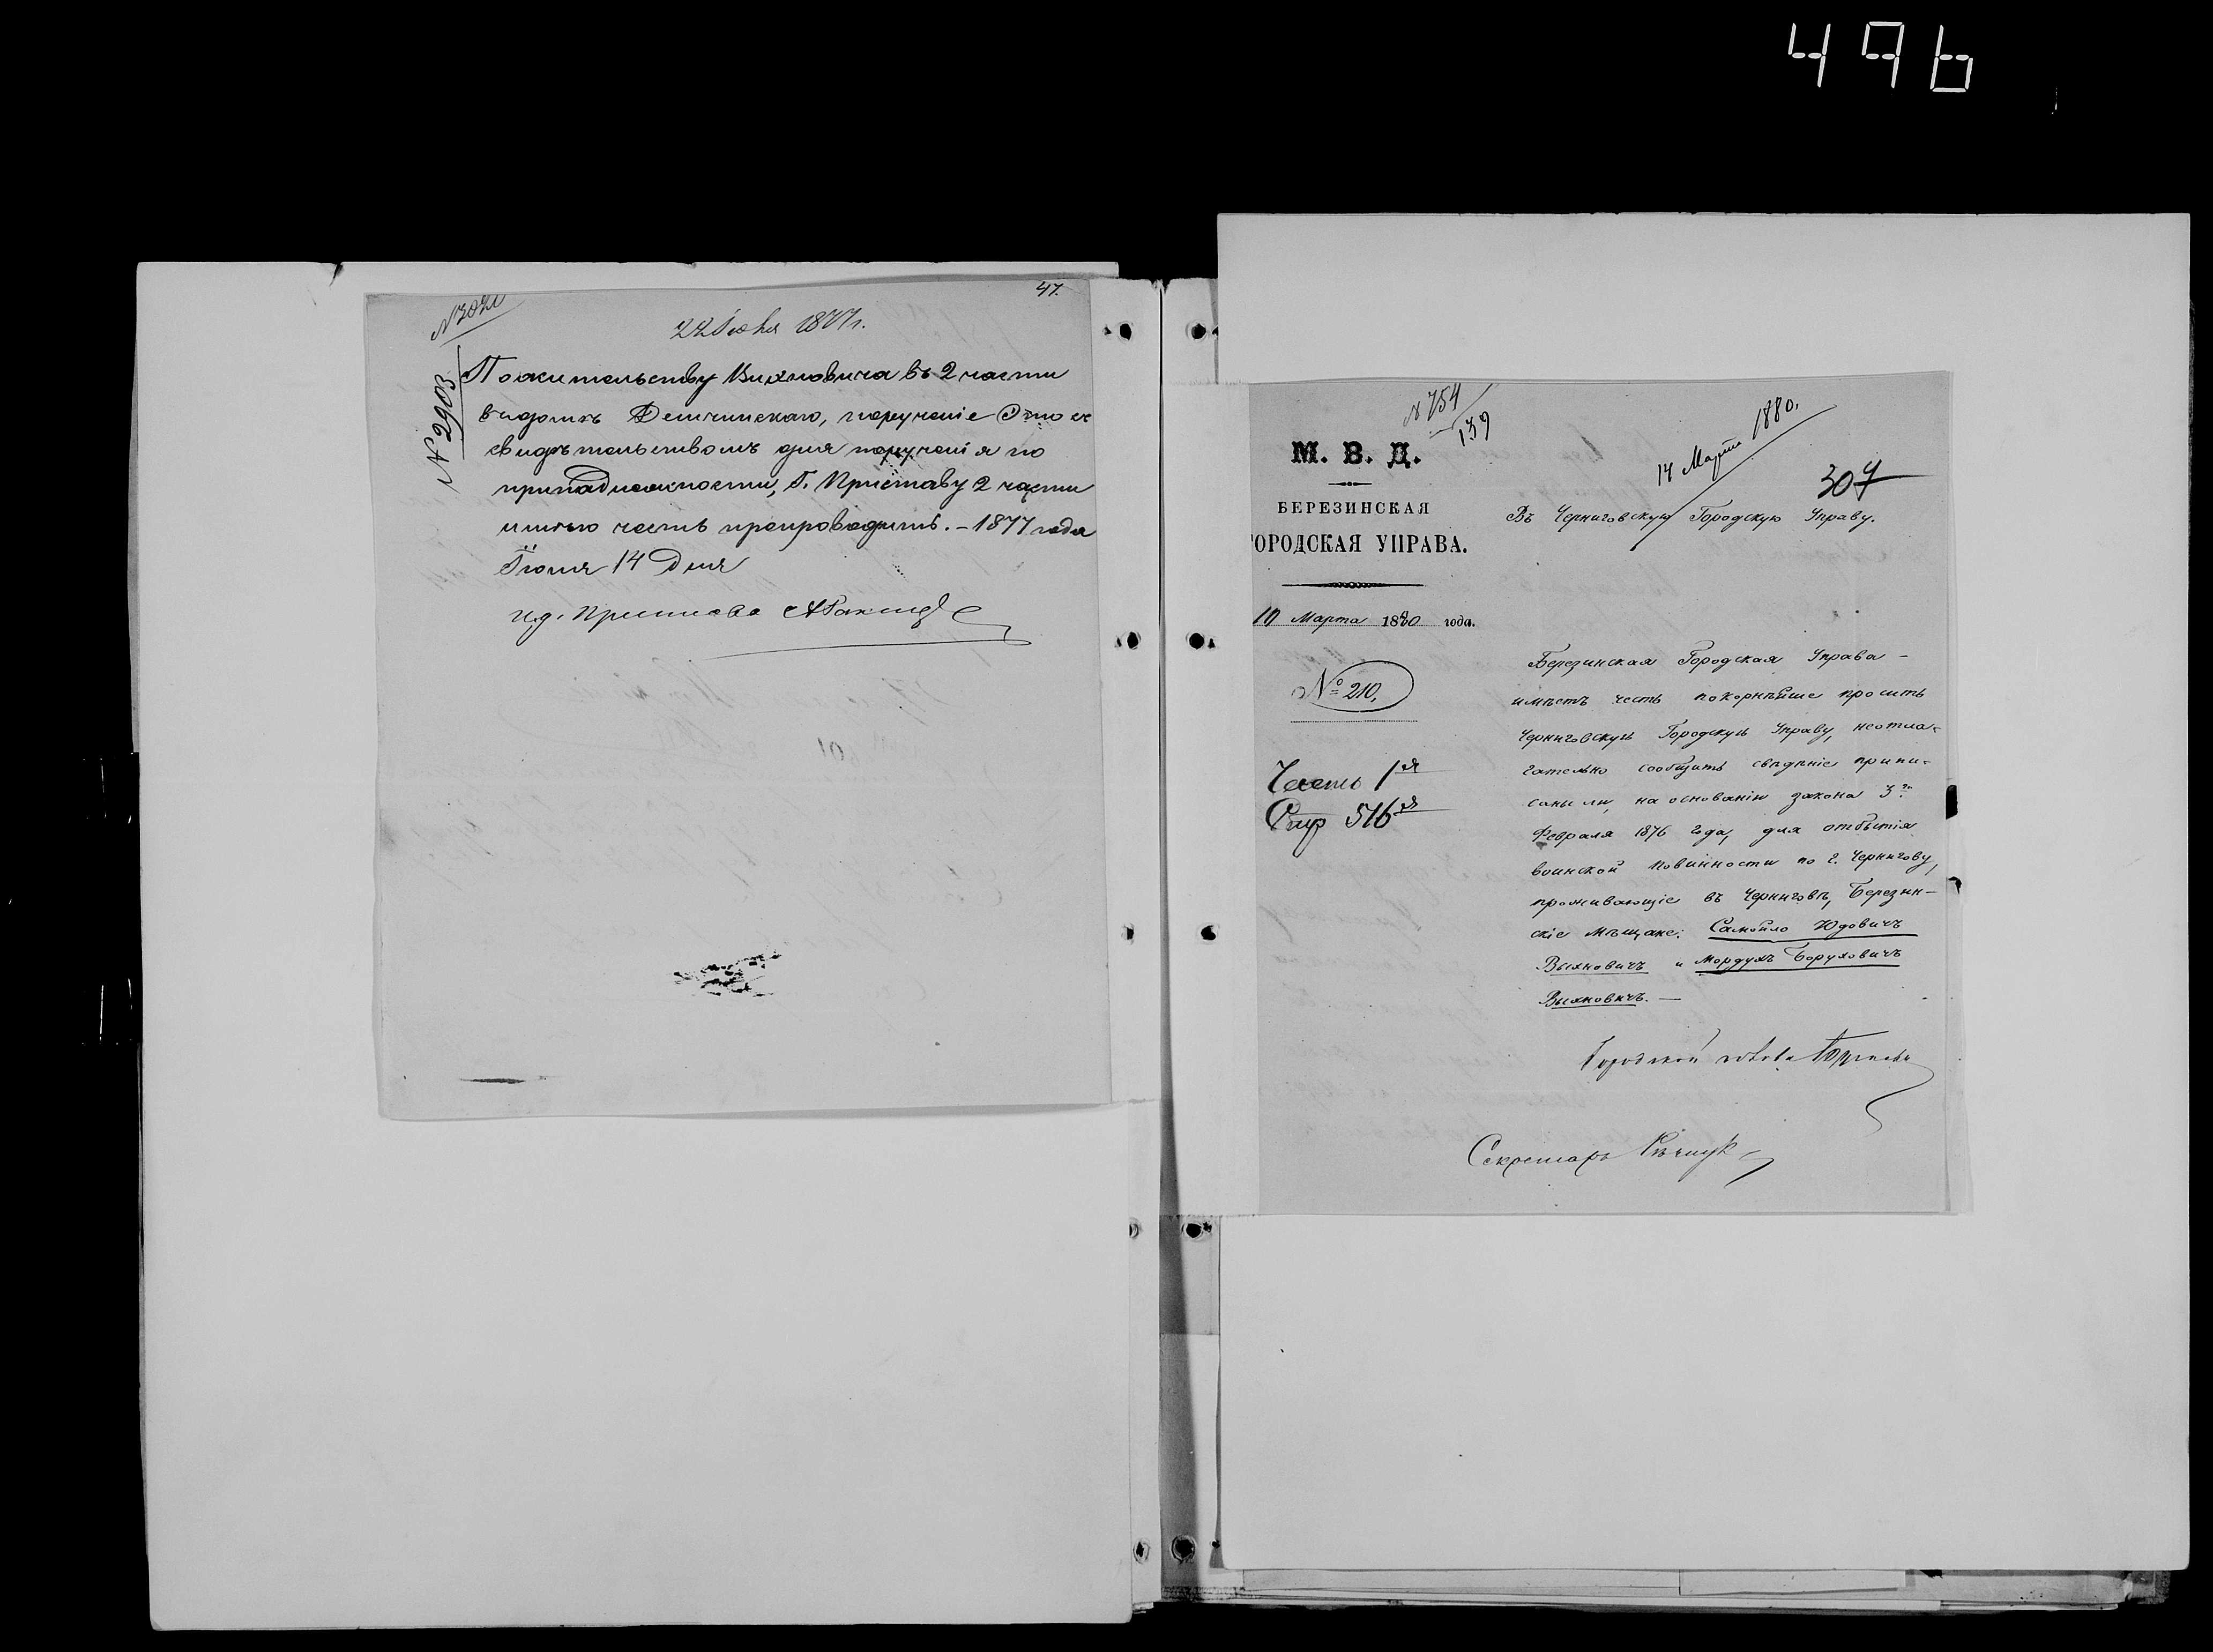 496
47.
22 Іюня 1877г.
№ 2903
По жительству Вихновича въ 2 части
свидѣтельствомъ для порученія по
принадлежности, Г. Приставу 2 части
имѣю честь препроводить. – 1877 года
Іюня 14 Дня
И.д. Пристава
№ 754
139
М. В. Д.
БЕРЕЗИНСКАЯ
ОРОДСКАЯ УПРАВА.
10 Марта 1880 года.
№ 210,
Часть 1я
Стр 516я
14 Марта 1880.
307
Въ Черниговскую Городскую Управу.
Березинская Городская Управа –
имѣетъ честь покорнѣйше просить
Черниговскую Городскую Управу, неотла-
гательно сообщить свѣдѣніе припи-
саны ли, на основаніи закона 3го
Февраля 1876 года, для отбытія
воинской повинности по г. Чернигову,
проживающіе въ Черниговѣ, Березин-
скіе мѣщане: Самойло Юдовичъ
Выхновичъ и Мордухъ Боруховичъ
Выхновичъ. –
Городской голова
Секретарь